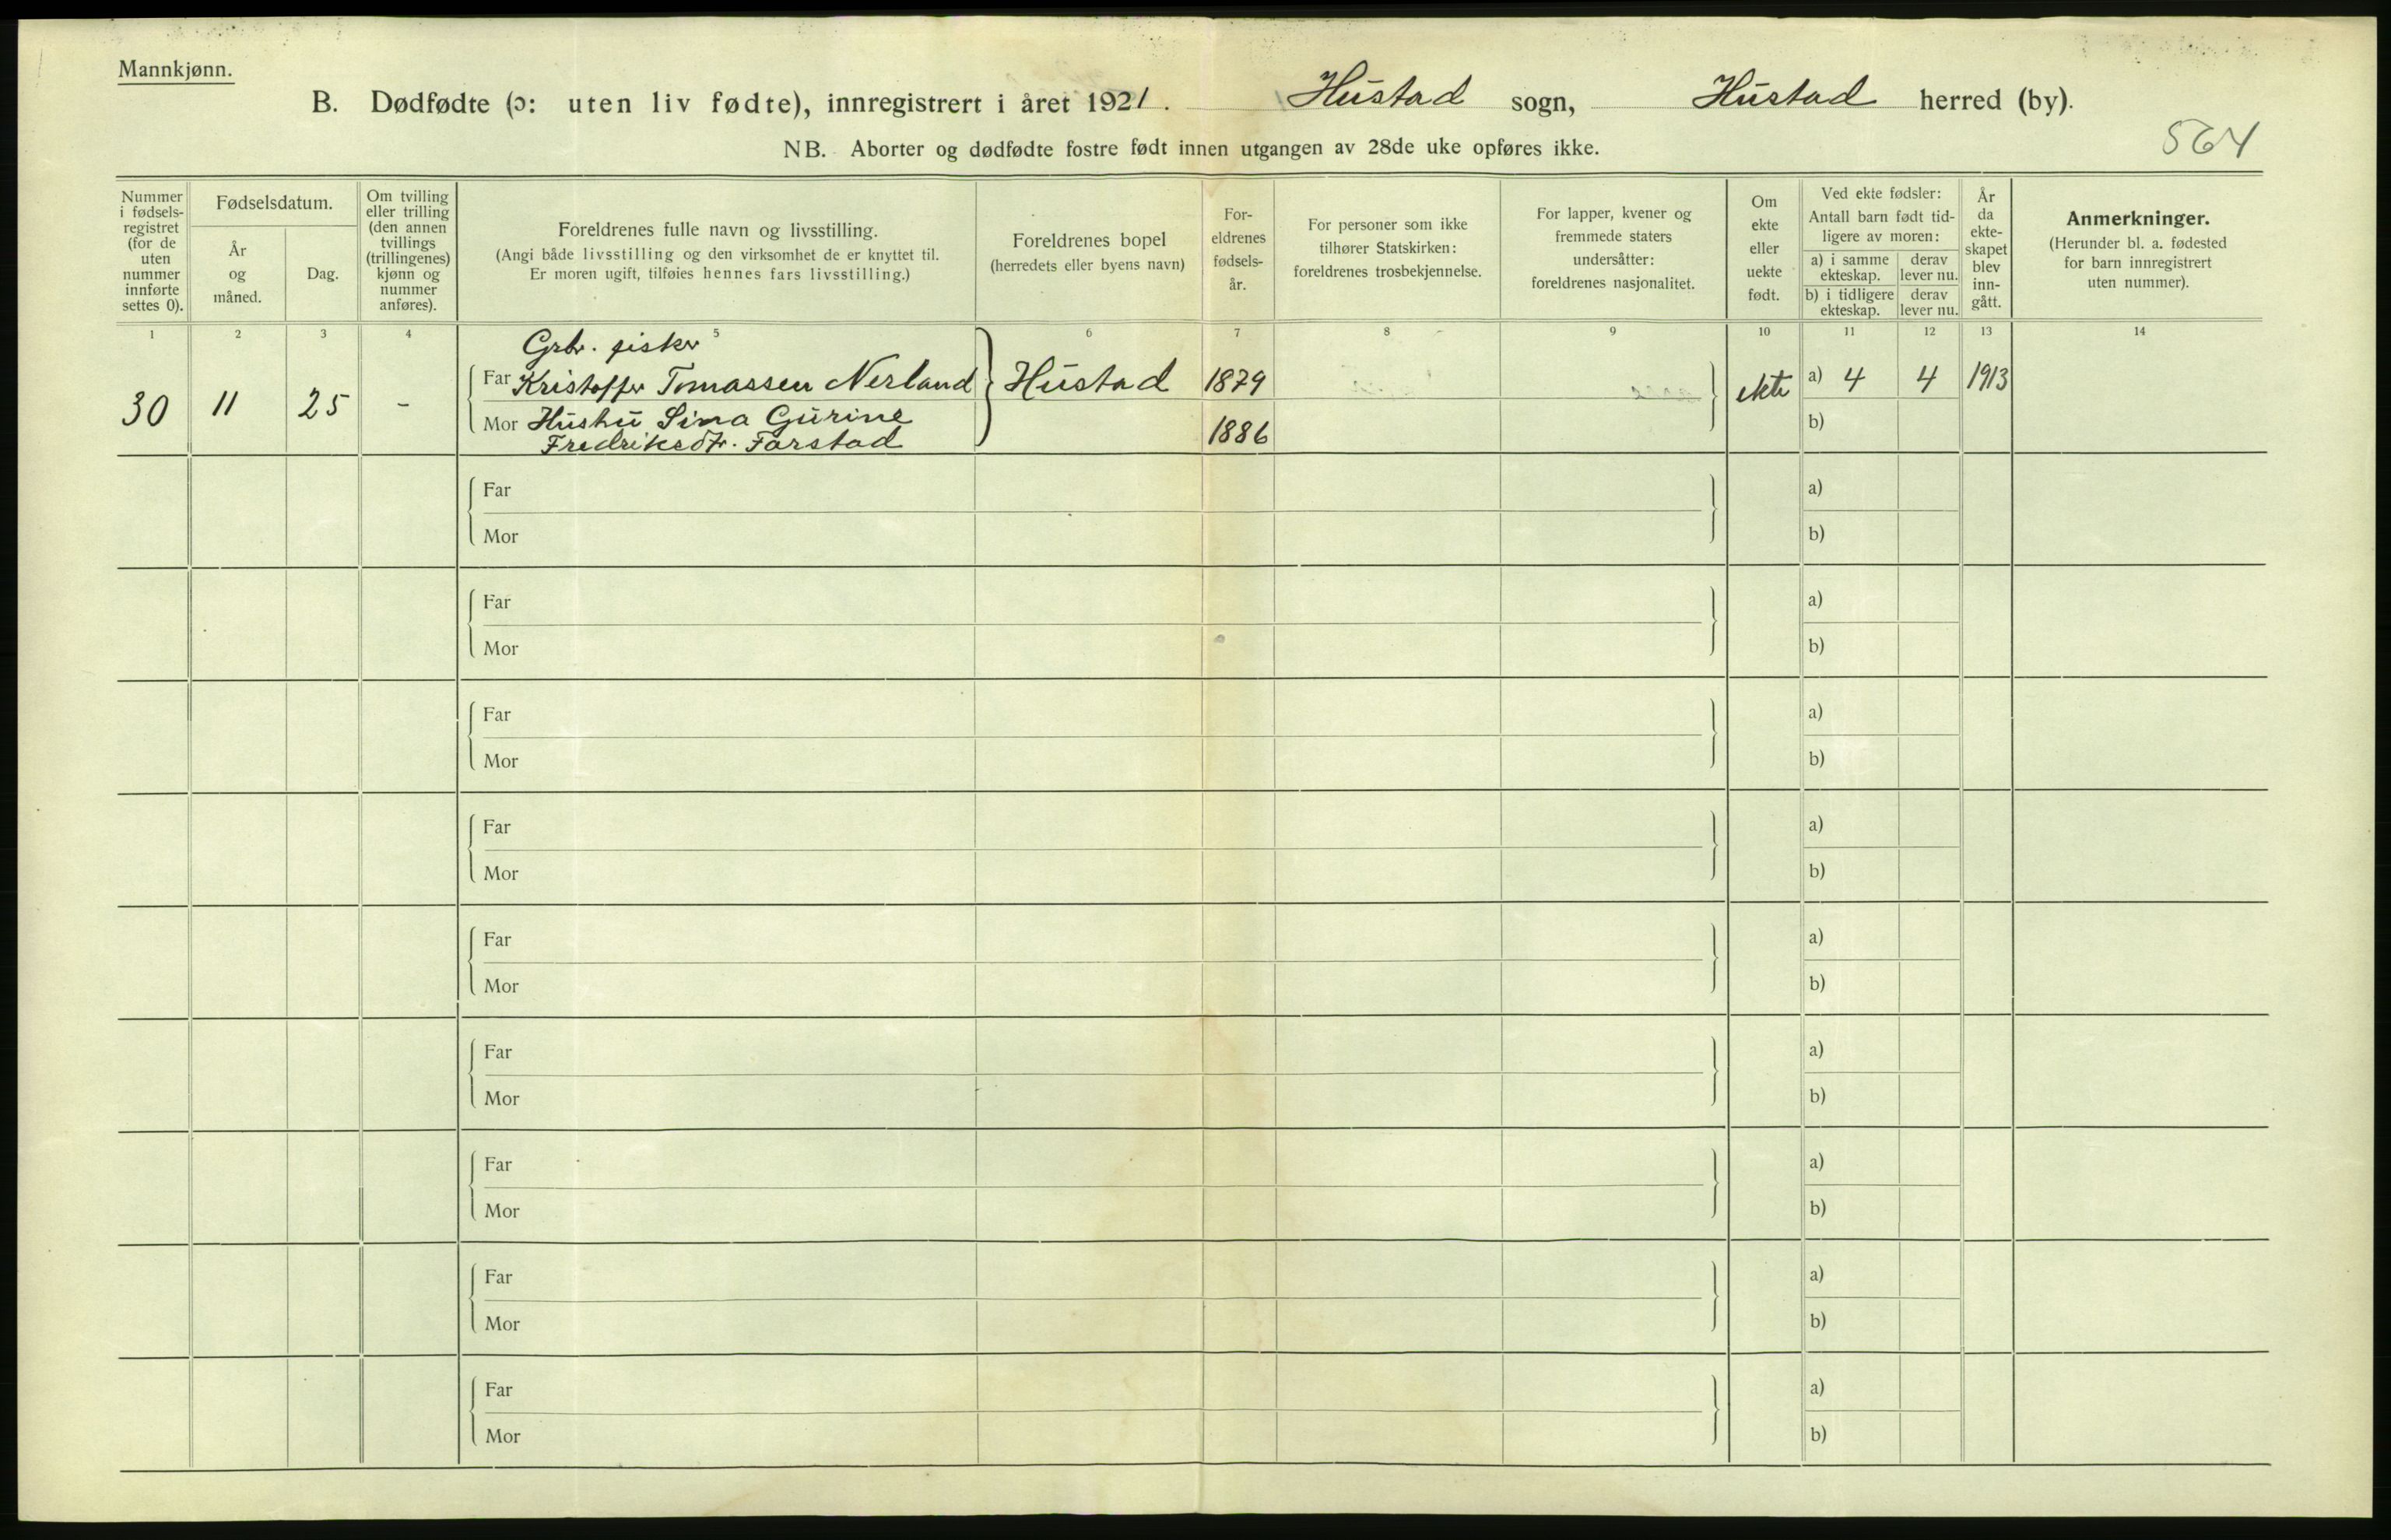 Mannkjønn.
B. Dødfødte (ɔ: uten liv fødte), innregistrert i året 1921. Hustad sogn, Hustad herred (by).
NB. Aborter og dødfødte fostre født innen utgangen av 28de uke opføres ikke.
564
Nummer
i fødsels-
registret
(for de
uten
nummer
innførte
settes 0).
Fødselsdatum.
År
og
måned.
Dag.
Om tvilling
eller trilling
(den annen
tvillings
(trillingenes)
kjønn og
nummer
anføres).
Foreldrenes fulle navn og livsstilling.
(Angi både livsstilling og den virksomhet de er knyttet til.
Er moren ugift, tilføies hennes fars livsstilling.)
Foreldrenes bopel
(herredets eller byens navn)
For-
eldrenes
fødsels-
år.
For personer som ikke
tilhører Statskirken:
foreldrenes trosbekjennelse.
For lapper, kvener og
fremmede staters
undersåtter:
foreldrenes nasjonalitet.
Om
ekte
eller
uekte
født.
Ved ekte fødsler:
Antall barn født tid-
ligere av moren:
a) i samme
ekteskap.
derav
lever nu.
b) i tidligere
ekteskap.
derav
lever nu.
År
da
ekte-
skapet
blev
inn-
gått.
Anmerkninger.
(Herunder bl. a. fødested
for barn innregistrert
uten nummer).
1 2 3 4 5 6 7 8 9 10 11 12 13 14
Grbr. fisker
30 11 25 - Far Kristoffer Tomassen Nerland Hustad 1879 ekte a) 4 4 1913
Mor Hustru Sina Gurine 1886 b)
Fredriksdtr. Farstad
Far a)
Mor b)
Far a)
Mor b)
Far a)
Mor b)
Far a)
Mor b)
Far a)
Mor b)
Far a)
Mor b)
Far a)
Mor b)
Far a)
Mor b)
Far a)
Mor b)